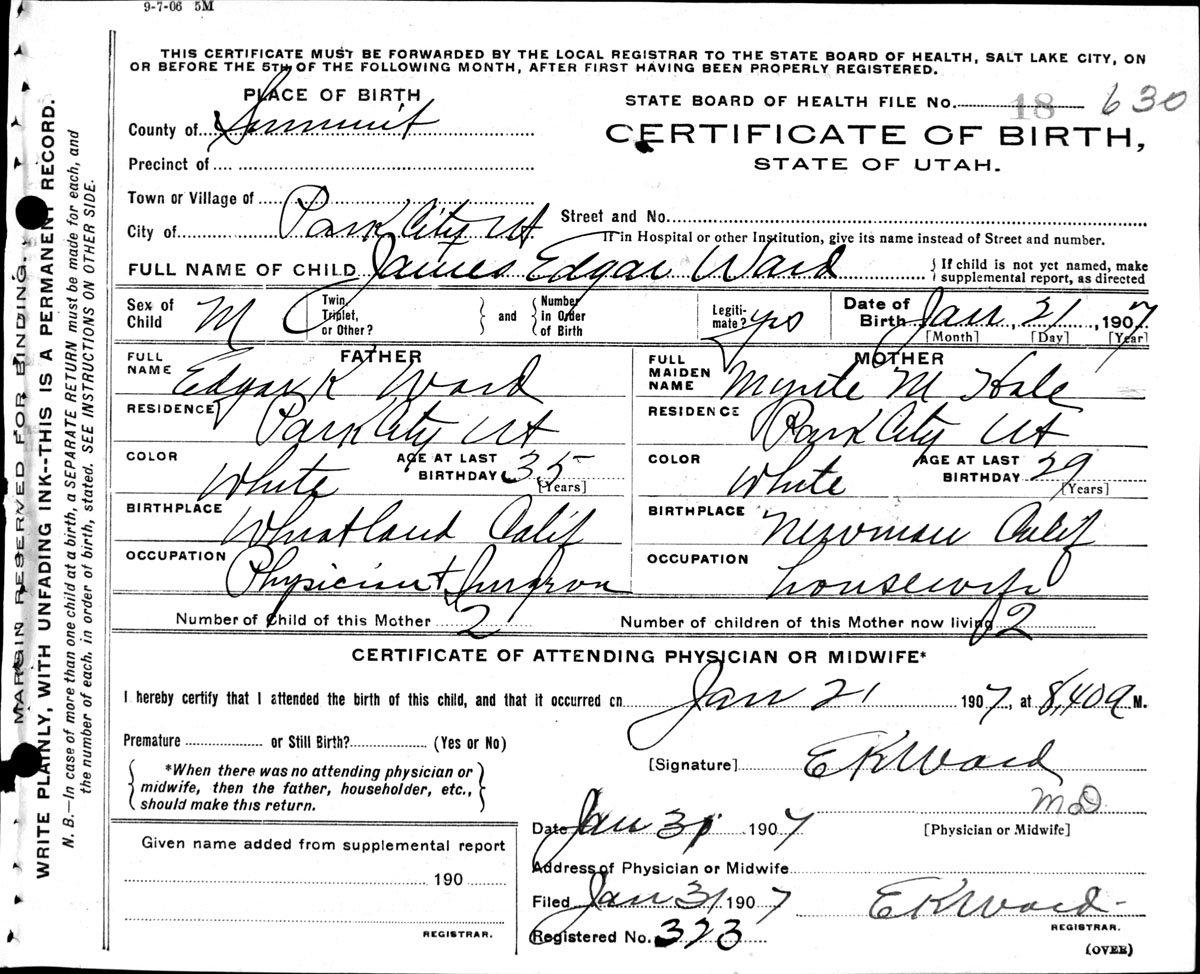 9-7-06 5M
THIS CERTIFICATE MUST BE FORWARDED BY THE LOCAL REGISTRAR TO THE STATE BOARD OF HEALTH, SALT LAKE CITY, ON
OR BEFORE THE 5TH OF THE FOLLOWING MONTH, AFTER FIRST HAVING BEEN PROPERLY REGISTERED.
PLACE OF BIRTH
STATE BOARD OF HEALTH FILE No. 18 630
County of Summit
CERTIFICATE OF BIRTH,
STATE OF UTAH.
Precinct of
Town or Village of
City of Park City Ut
Street and No.
If in Hospital or other Institution, give its name instead of Street and number.
FULL NAME OF CHILD James Edgar Ward { If child is not yet named, make
supplemental report, as directed
Sex of Child M Twin, Triplet, or Other? } and { Number in Order of Birth Legiti-mate? yes Date of Birth Jan 21, 1907
[Month] [Day] [Year]
FATHER
MOTHER
FULL NAME Edgar K Ward
FULL MAIDEN NAME Myrtle M Hale
RESIDENCE Park City Ut
RESIDENCE Park City Ut
COLOR White AGE AT LAST BIRTHDAY 35 [Years]
COLOR White AGE AT LAST BIRTHDAY 29 [Years]
BIRTHPLACE Wheatland Calif
BIRTHPLACE Newman Calif
OCCUPATION Physician + Surgeon
OCCUPATION housewife
Number of Child of this Mother 2
Number of children of this Mother now living 2
CERTIFICATE OF ATTENDING PHYSICIAN OR MIDWIFE*
I hereby certify that I attended the birth of this child, and that it occurred on Jan 21 1907, at 8,40 a M.
Premature or Still Birth? (Yes or No)
*When there was no attending physician or
midwife, then the father, householder, etc.,
should make this return.
[Signature] E K Ward
M D
[Physician or Midwife]
Date Jan 31 1907
Given name added from supplemental report
190
REGISTRAR.
Address of Physician or Midwife
Filed Jan 31 1907 E K Ward
REGISTRAR.
Registered No. 323
(OVER)
MARGIN RESERVED FOR BINDING.
WRITE PLAINLY, WITH UNFADING INK--THIS IS A PERMANENT RECORD.
N. B.—In case of more than one child at a birth, a SEPARATE RETURN must be made for each, and
the number of each, in order of birth, stated. SEE INSTRUCTIONS ON OTHER SIDE.